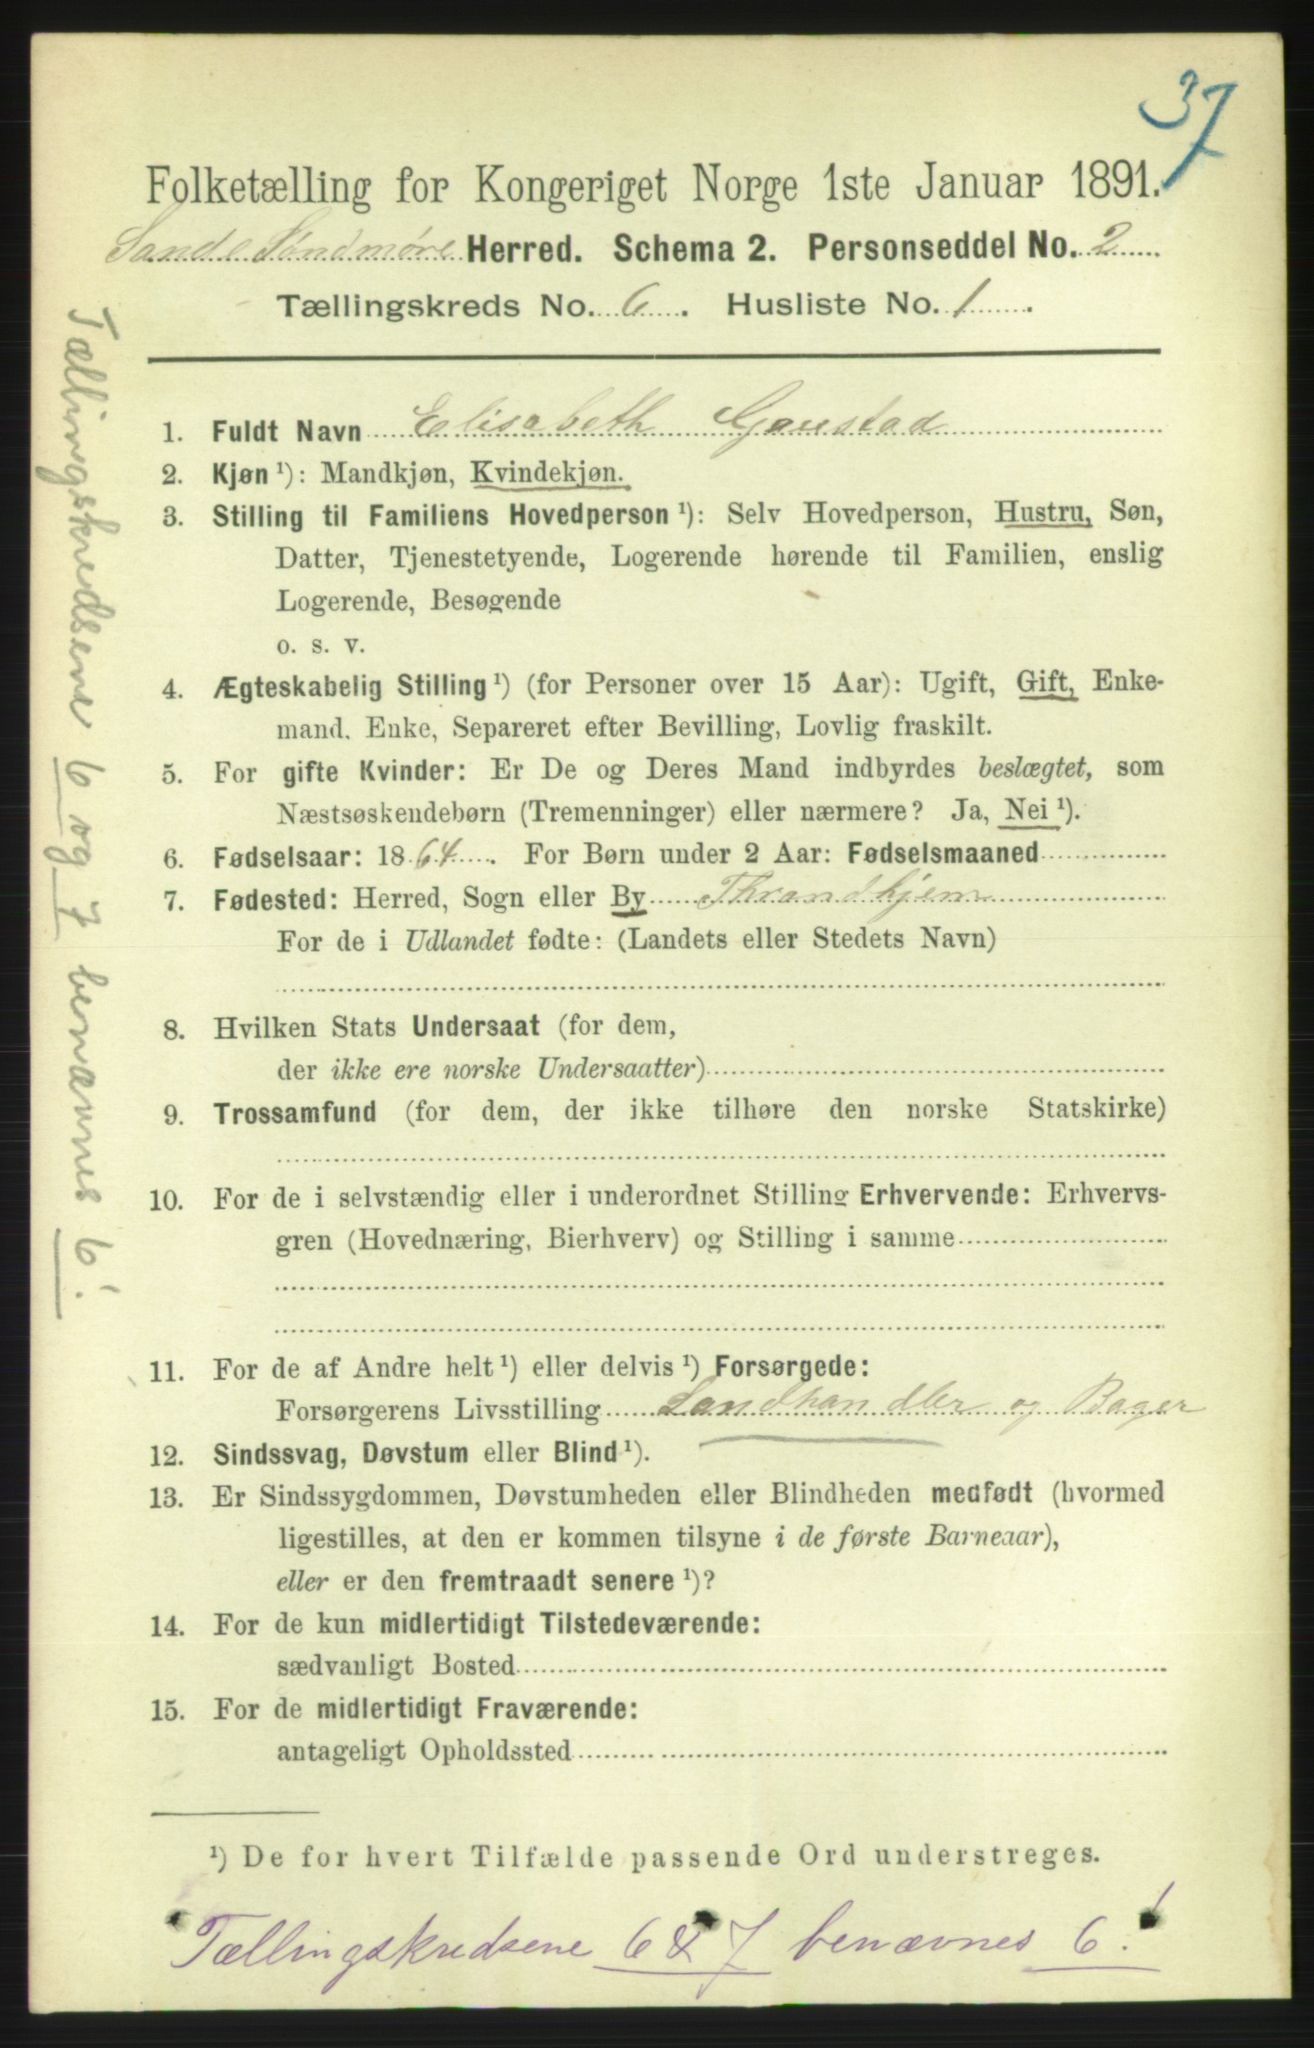 37
Folketælling for Kongeriget Norge 1ste Januar 1891.
Sande Søndmøre Herred. Schema 2. Personseddel No. 2
Tællingskreds No. 6. Husliste No. 1.
1. Fuldt Navn Elisabeth Gaustad
2. Kjøn ¹): Mandkjøn, Kvindekjøn.
3. Stilling til Familiens Hovedperson ¹): Selv Hovedperson, Hustru, Søn,
Datter, Tjenestetyende, Logerende hørende til Familien, enslig
Logerende, Besøgende
o. s. v.
4. Ægteskabelig Stilling ¹) (for Personer over 15 Aar): Ugift, Gift, Enke-
mand, Enke, Separeret efter Bevilling, Lovlig fraskilt.
5. For gifte Kvinder: Er De og Deres Mand indbyrdes beslægtet, som
Næstsøskendebørn (Tremenninger) eller nærmere? Ja, Nei ¹).
6. Fødselsaar: 1864. For Børn under 2 Aar: Fødselsmaaned
7. Fødested: Herred, Sogn eller By Thrandhjem
For de i Udlandet fødte: (Landets eller Stedets Navn)
8. Hvilken Stats Undersaat (for dem,
der ikke ere norske Undersaatter)
9. Trossamfund (for dem, der ikke tilhøre den norske Statskirke)
10. For de i selvstændig eller i underordnet Stilling Erhvervende: Erhvervs-
gren (Hovednæring, Bierhverv) og Stilling i samme
11. For de af Andre helt ¹) eller delvis ¹) Forsørgede:
Forsørgerens Livsstilling Landhandler og Bager
12. Sindssvag, Døvstum eller Blind ¹).
13. Er Sindssygdommen, Døvstumheden eller Blindheden medfødt (hvormed
ligestilles, at den er kommen tilsyne i de første Barneaar),
eller er den fremtraadt senere ¹)?
14. For de kun midlertidigt Tilstedeværende:
sædvanligt Bosted
15. For de midlertidigt Fraværende:
antageligt Opholdssted
¹) De for hvert Tilfælde passende Ord understreges.
Tællingskredsene 6 & 7 benævnes 6!
Tællingskredsene 6 og 7 benævnes 6!